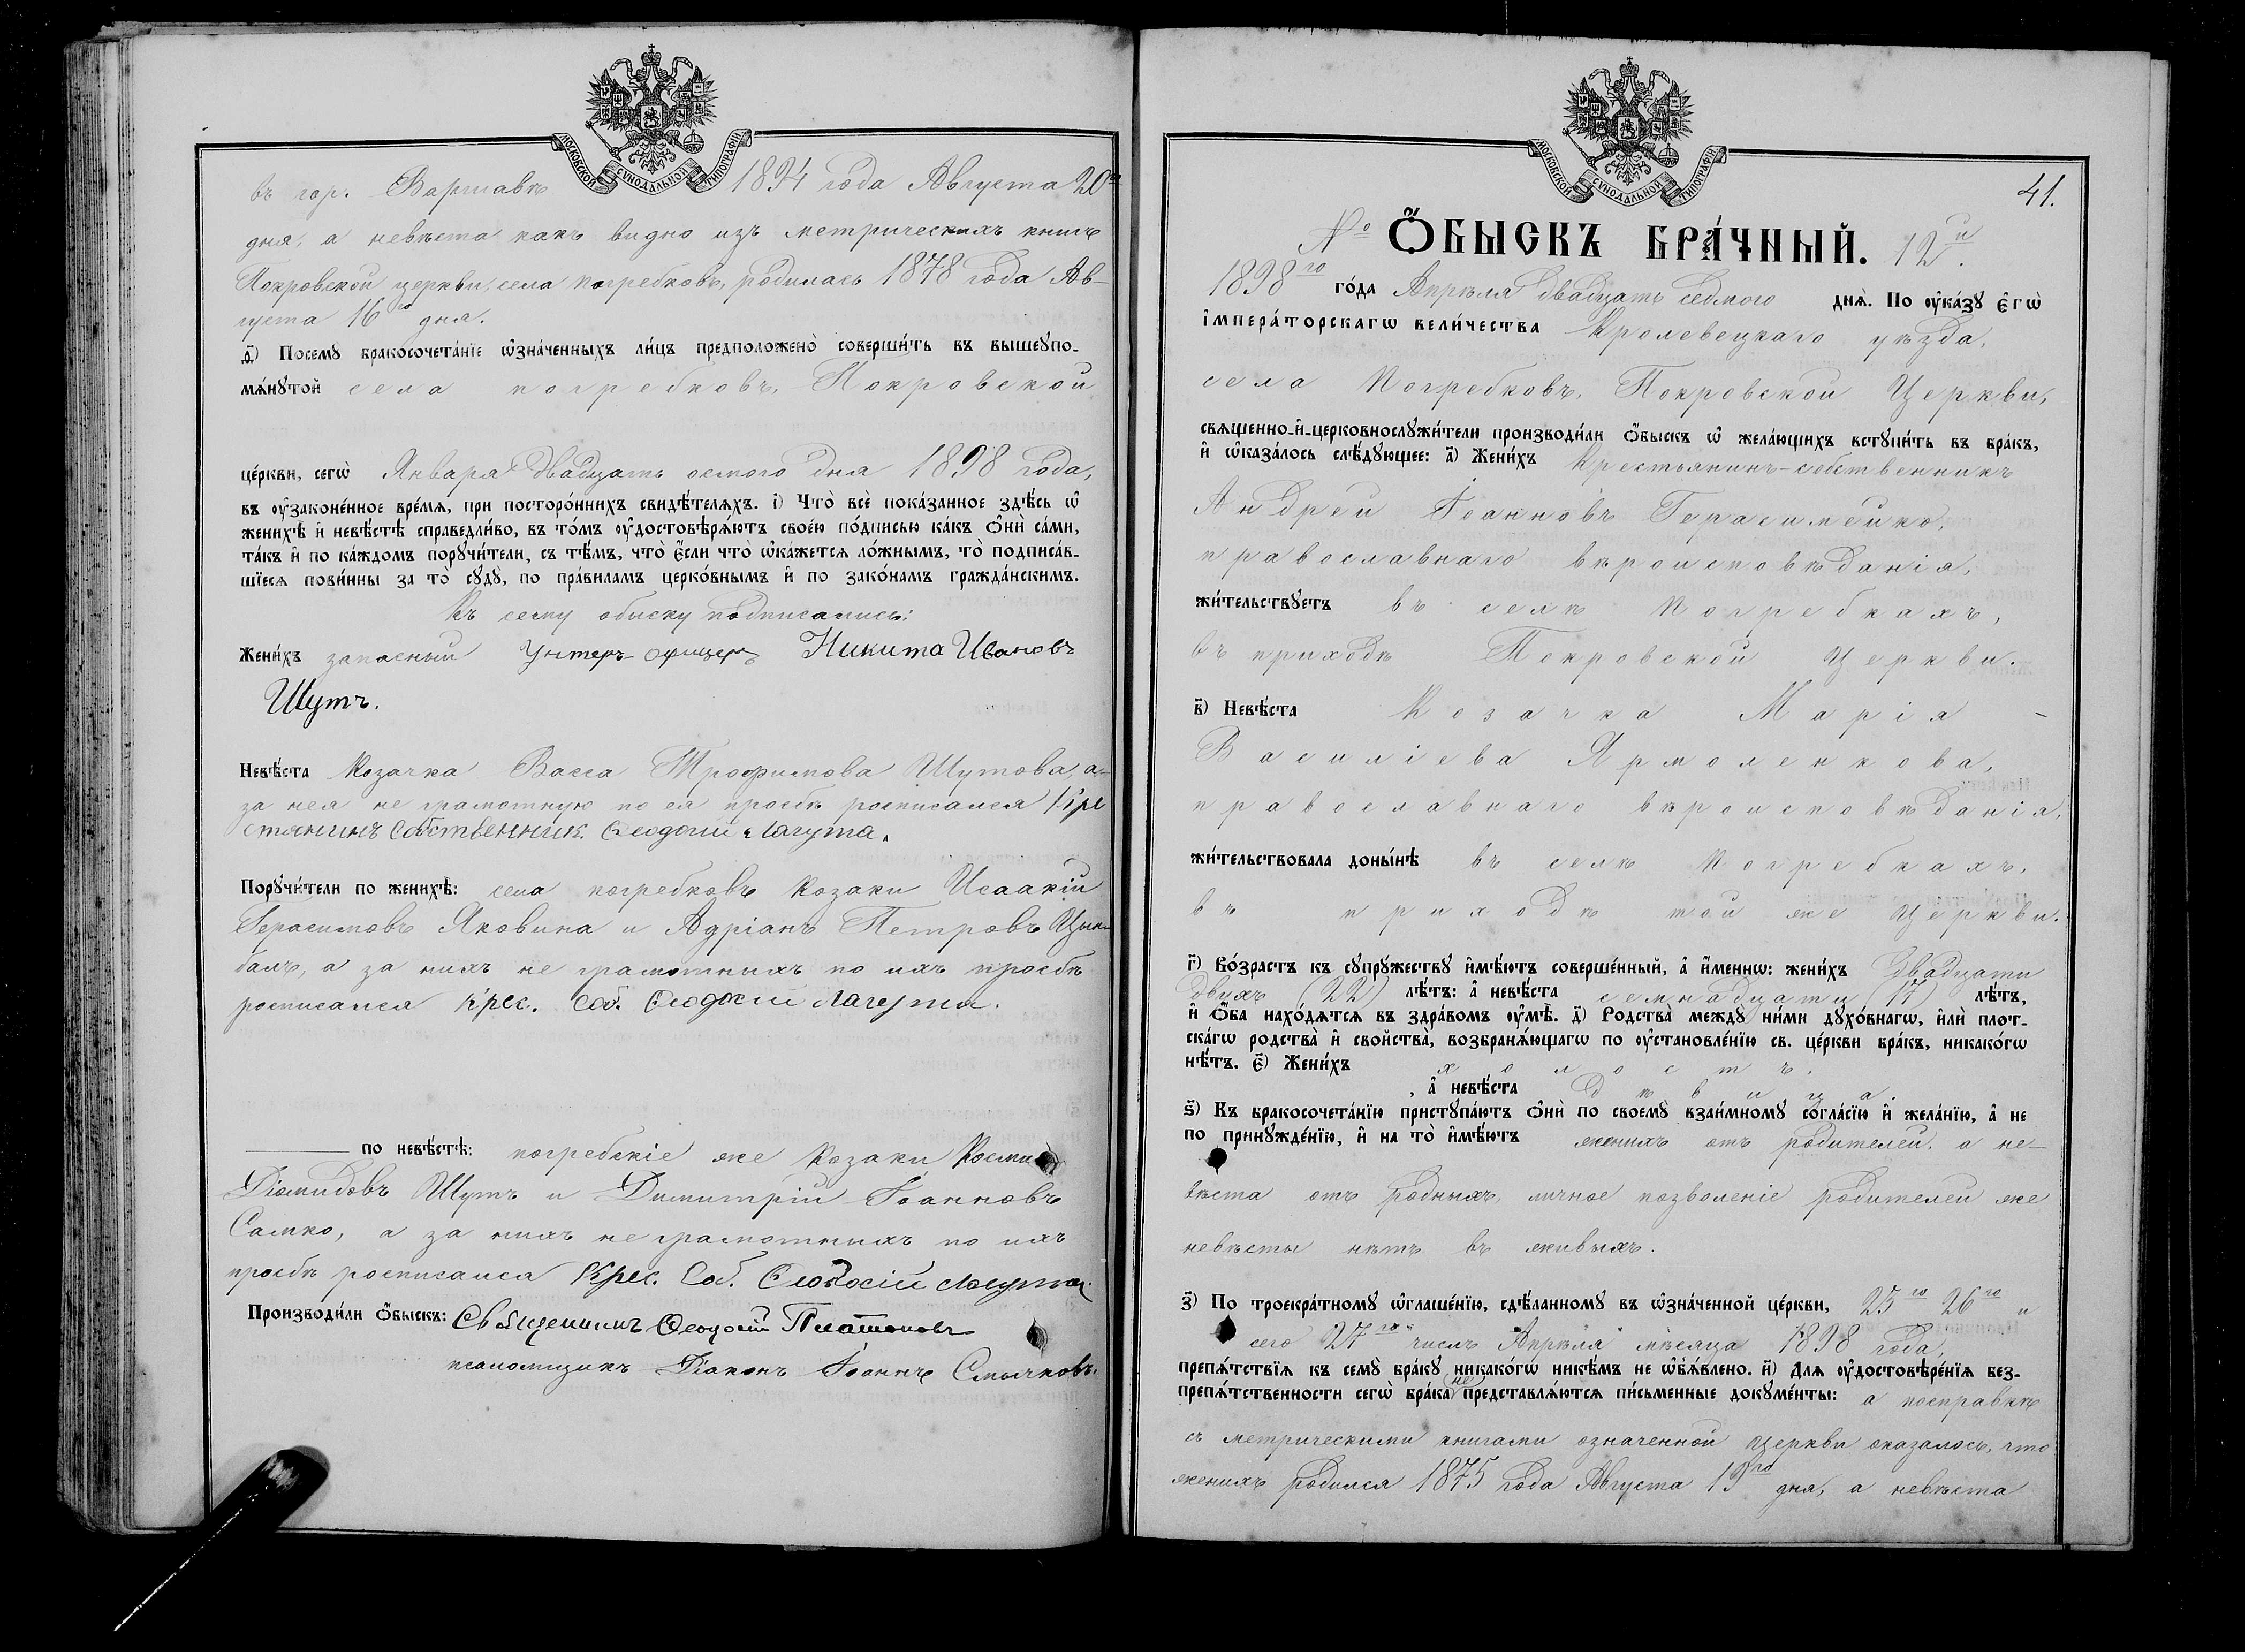 МОСКОВСКОЙ СѴНОДАЛЬНОЙ ТИПОГРАФІИ
въ гор. Варшавѣ 1894 года Августа 20го
дня, а невѣста какъ видно изъ метрическихъ книгъ
Покровской церкви, села Погребковъ, родилась 1878 года Ав-
густа 16го дня.
ѳ҃) Посемꙋ бракосочета́нїе ѡ҆зна́ченныхъ ли́цъ предположено̀ соверши́ть въ вышеꙋпо-
мѧ́нꙋтой села погребковъ, Покровской
це́ркви, сегѡ̀ Января двадцать осмого дня 1898 года,
въ ᲂу҆законе́нное вре́мѧ, при посторо́ннихъ свидѣ́телѧхъ. і҃) Что̀ всѐ пока́занное здѣ́сь ѡ҆
женихѣ̀ и҆ невѣ́стѣ справедли́во, въ то́мъ ᲂу҆достовѣрѧ́ютъ свое́ю по́дписью ка́къ ѻ҆нѝ са́ми,
та́къ и҆ по ка́ждомъ порꙋчи́тели, съ тѣ́мъ, что̀ є҆́сли что̀ ѡ҆ка́жетсѧ ло́жнымъ, то̀ подписа́в-
шїесѧ пови́нны за то̀ сꙋдꙋ̀, по пра́виламъ церко́внымъ и҆ по зако́намъ гражда́нскимъ.
Къ сему обыску подписались:
Жени́хъ запасный Унтеръ-офицеръ Никита Ивановъ
Шутъ.
Невѣ́ста Козачка Васса Трофимова Шутова, а-
за нея не грамотную по ея просьбѣ росписался Кре
стянинъ собственник. Ѳеодосій Лагута.
Порꙋчи́тели по женихѣ̀: села погребковъ козаки Исаакій
Герасимовъ Яковина и Адріанъ Петровъ Цым-
балъ, а за нихъ не грамотныхъ по ихъ просьбѣ
росписался Крес. Соб. Ѳеодосій Лагута.
по невѣ́стѣ: погребскіе же козаки, Косма
Діомидовъ Шутъ и Димитрій Іоанновъ
Самко, а за нихъ не грамотныхъ по ихъ
просьбѣ росписался Крес. Соб. Ѳеодосій Лагута.
Производи́ли ѻ҆́быскъ: Священникъ Ѳеодосій Платоновъ
псаломщикъ Діаконъ Іоаннъ Смычковъ.
МОСКОВСКОЙ СѴНОДАЛЬНОЙ ТИПОГРАФІИ
41.
№ Ѻ҆́БЫСКЪ БРА́ЧНЫЙ. 12й.
1898го го́да Апрѣля двадцать седмого днѧ̀. По ᲂу҆ка́зꙋ є҆гѡ̀
і҆мпера́торскагѡ вели́чества Кролевецкаго уѣзда,
села Погребковъ, Покровской Церкви,
свѧщенно-и҆-церковнослꙋжи́тели производи́ли ѻ҆́быскъ ѡ҆ жела́ющихъ встꙋпи́ть въ бра́къ,
и҆ ѡ҆каза́лось слѣ́дꙋющее: а҃) Жени́хъ Крестьянинъ-собственникъ
Андрей Іоанновъ Герасимейко,
православнаго вѣроисповѣданія,
жи́тельствꙋетъ въ селѣ Погребкахъ,
въ приходѣ Покровской Церкви.
в҃) Невѣ́ста Козачка Марія -
Василіева Ярмоленкова,
православнаго вѣроисповѣданія,
жи́тельствовала доны́нѣ въ селѣ Погребкахъ,
въ приходѣ той же Церкви.
г҃) Во́зрастъ къ сꙋпрꙋжествꙋ и҆мѣ́ютъ соверше́нный, а҆ и҆́меннѡ: жени́хъ двадцати
двухъ (22) лѣ́тъ: а҆ невѣ́ста семнадцати (17) лѣ́тъ,
и҆ ѻ҆́ба нахо́дѧтсѧ въ здра́вомъ ᲂу҆мѣ̀. д҃) Родства̀ междꙋ ни́ми дꙋхо́внагѡ, и҆лѝ плот-
ска́гѡ родства̀ и҆ свойства̀, возбранѧ́ющагѡ по ᲂу҆становле́нїю св. це́ркви бра́къ, никако́гѡ
нѣ́тъ. є҃) Жени́хъ холостъ,
, а҆ невѣ́ста дѣвица.
ѕ҃) Къ бракосочета́нїю пристꙋпа́ютъ ѻ҆нѝ по своемꙋ̀ взаи́мномꙋ согла́сїю и҆ жела́нїю, а҆ не
по принꙋжде́нїю, и҆ на то̀ и҆мѣ́ютъ женихъ отъ родителей, а не-
вѣста отъ родныхъ, личное позволеніе родителей же
невѣсты нѣтъ въ живыхъ.
з҃) По троекра́тномꙋ ѡ҆глаше́нїю, сдѣ́ланномꙋ въ ѡ҆зна́ченной це́ркви, 25го 26го и
сего 27го числъ Апрѣля мѣсяца 1898 года,
препѧ́тствїѧ къ семꙋ̀ бра́кꙋ никако́гѡ никѣ́мъ не ѡ҆б̾ѧ́влено. и҃) Длѧ ᲂу҆достовѣре́нїѧ без-
препѧ́тственности сегѡ̀ бра́ка (не) представлѧ́ютсѧ пи́сьменные докꙋме́нты: а посправкѣ
съ метрическими книгами означенной церкви оказалось, что
женихъ родился 1875 года Августа 19го дня, а невѣста